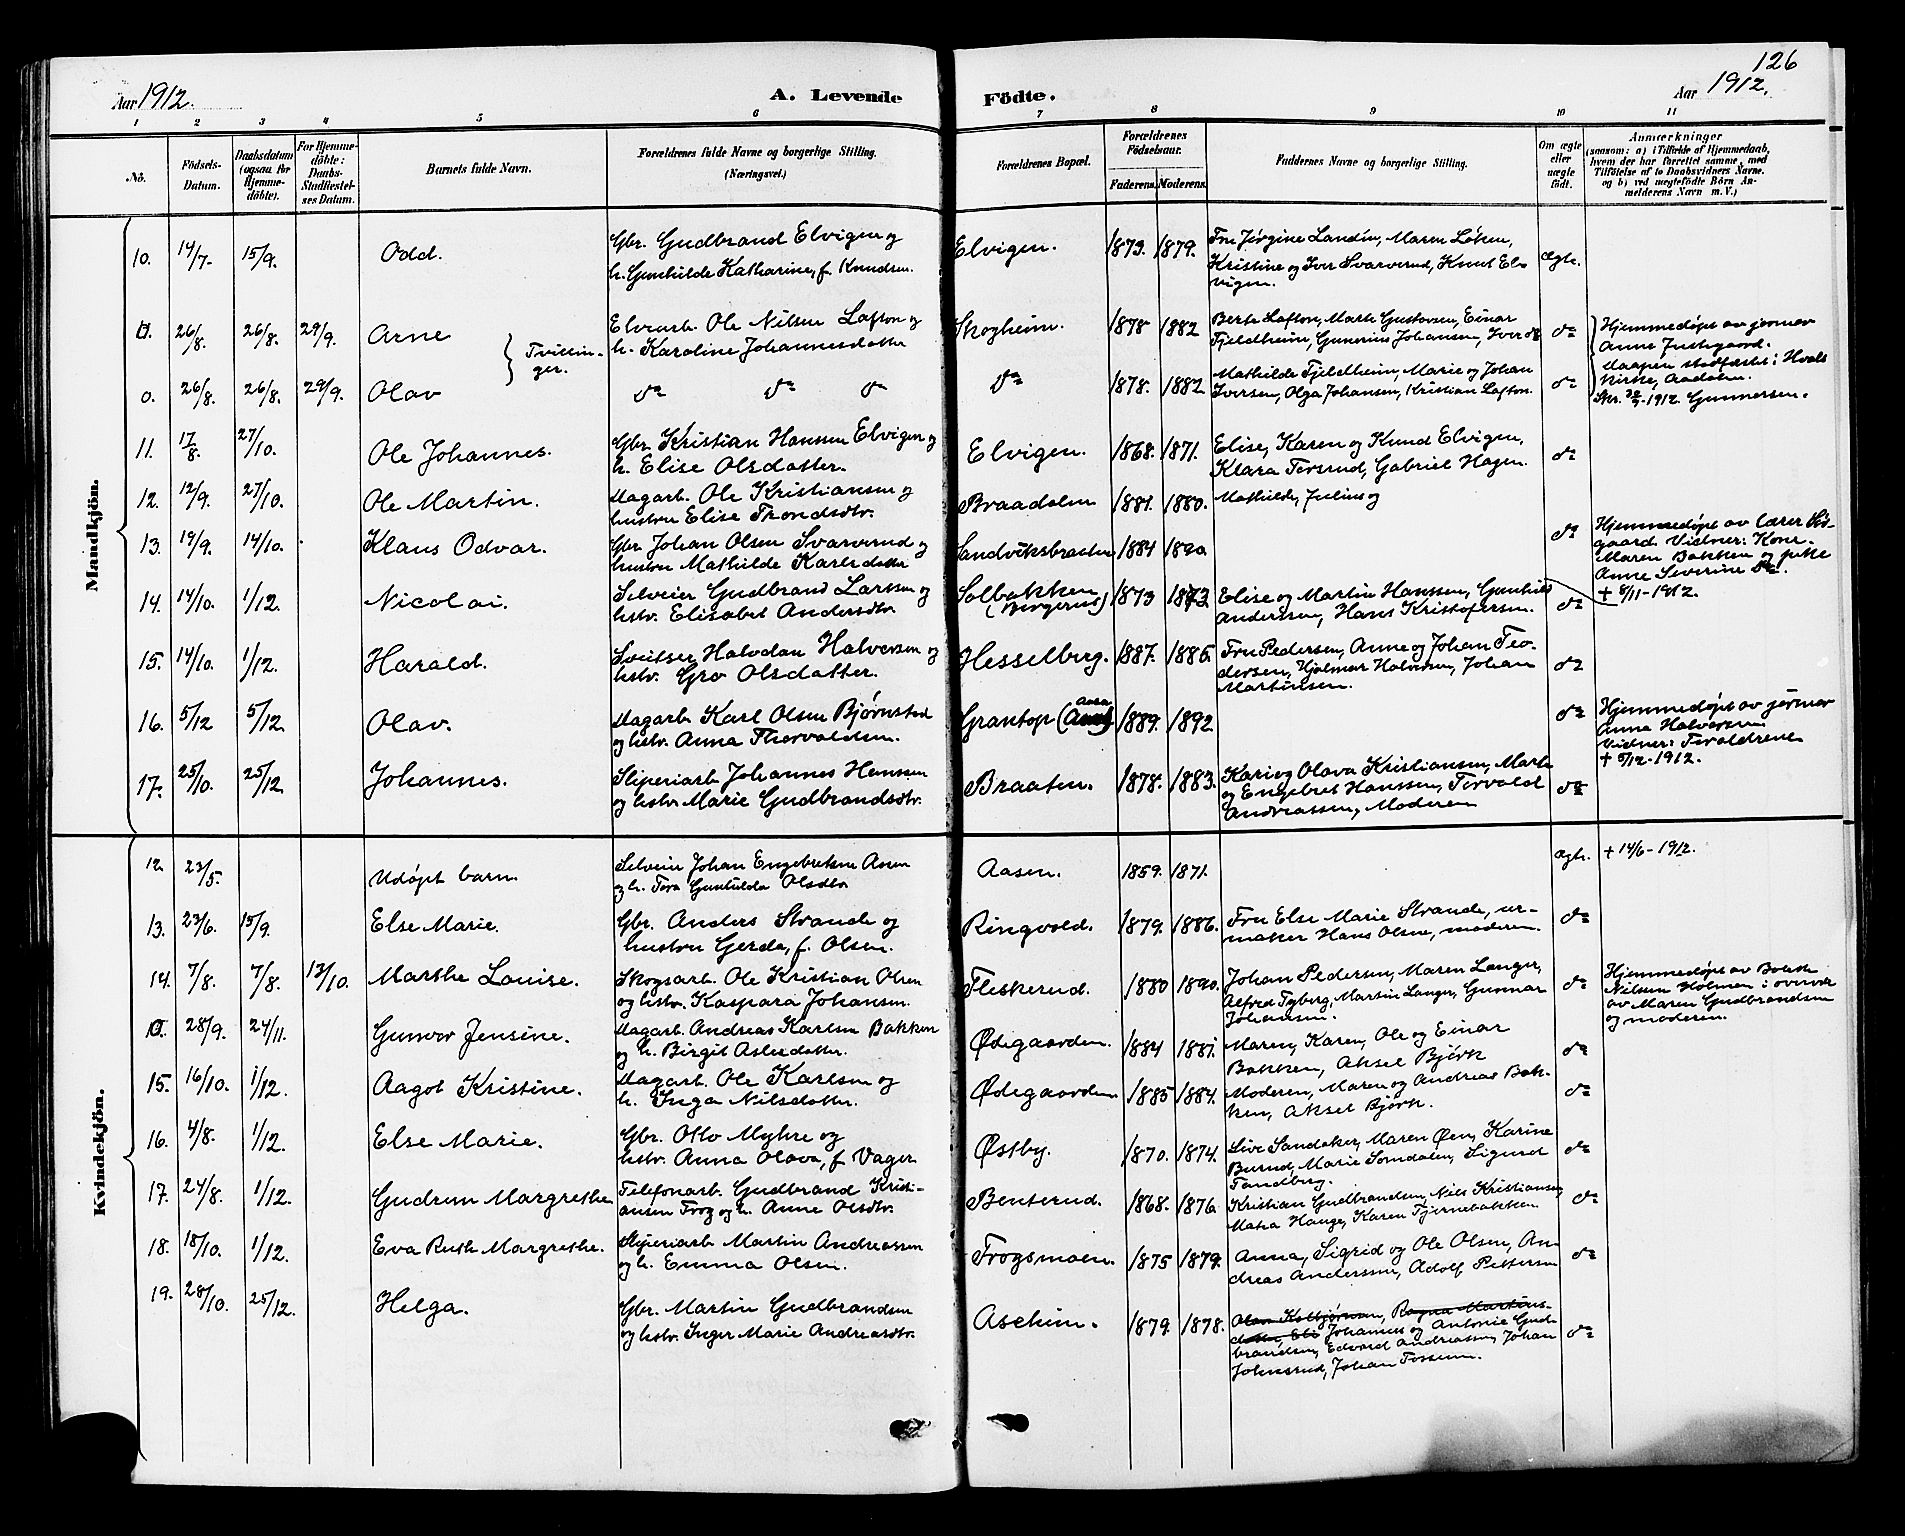 126
Aar 1912.
A. Levende Födte.
Aar 1912.
1 2 3 4 5 6 7 8 9 10 11
No.
Födsels-Datum.
Daabsdatum (ogsaa for Hjemme-döbte).
For Hjemme-döbte: Daabs-Stadfæstel-ses Datum.
Barnets fulde Navn.
Forældrenes fulde Navne og borgerlige Stilling.
(Næringsvei.)
Forældrenes Bopæl.
Forældrenes Födselsaar.
Faderens. Moderens.
Faddernes Navne og borgerlige Stilling.
Om ægte eller uægte födt.
Anmærkninger
(saasom: a) i Tilfælde af Hjemmedaab,
hvem der har forrettet samme, med
Tilföielse af to Daabsvidners Navne.
og b) ved uægtefödte Börn An-
melderens Navn m. V.)
Mandkjön.
10. 14/7. 15/9. Odd. Gbr. Gudbrand Elvigen og
h. Gunhilde Katharine, f. Knudsen. Elvigen. 1873. 1879. Fru Jørgine Landin, Maren Løken,
Kristine og Iver Svarverud, Knut El-
vigen. Ægte.
0. 26/8. 26/8. 29/9. Arne Elvearb. Ole Nilsen Lafton og
h. Karoline Johannesdatter Skogheim. 1878 1882 Berte Lafton, Marte Gustavsen, Einar
Fjeldheim, Gunerius Johansen, Iver do do
Tvillin-
ger.
Hjemmedøpt av jormor
Anne
Daapen stadfæstet i Hvals
kirke, Aadalen.
1912. Gunnersen.
0. 26/8. 26/8. 29/9. Olav do do do do 1878. 1882 Mathilde Fjeldheim, Marie og Johan
Iversen, Olga Johansen, Kristian Lafton. do
11. 17/8. 27/10. Ole Johannes. Gbr. Kristian Hansen Elvigen og
h. Elise Olsdatter. Elvigen. 1868. 1871. Elise, Karen og Knud Elvigen,
Klara Tersrud, Gabriel Hagen. do
12. 12/9. 27/10. Ole Martin. Dagarb. Ole Kristiansen og
hustru Elise Trondsdtr. Braadalen 1881. 1880. Mathilde, Julius og
13. 19/9. 14/10. Klaus Odvar. Gbr. Johan Olsen Svarverud og
hustru Mathilde Karlsdatter Sandviksbraaten 1884 1890 do Hjemmedøpt av lærer
Vidner: Kone
Maren Bakken og pike
Anne Severine do.
14. 14/10. 1/12. Nicolai. Selveier Gudbrand Larsen og
hstr. Elisabet Andersdtr. Solbakken
1873 1873 Elise og Martin Hanssen, Gunhild
Anderssen, Hans Kristofersen. do + 8/11-1912.
15. 14/10. 1/12. Harald. Sveitser Halvdan Halvorsen og
hstr. Gro Olsdatter. Hesselberg. 1887. 1885. Fru Pedersen, Anne og Johan Teo-
dersen, Hjalmar Halvorsen, Johan
Martinsen. do
16. 5/12 5/12. Olav. Dagarb. Karl Olsen Bjørnstad
og hstr. Anna Thorvaldsen. Grantop 1889. 1892. do Hjemmedøpt av jormor
Anna Halvorsen
Vidner: Foraldrene
+ 5/12-1912.
17. 25/10. 25/12. Johannes. Sliperiarb. Johannes Hanssen
og hstr. Marie Gudbrandsdtr. Braaten. 1878. 1883. Kari og Olava Kristiansen, Marte
og Engebret Hanssen, Torvald
Andreassen, Moderen do
Kvindekjön.
12. 23/5. Udøpt barn. Selveier Johan Engebretsen Aasen
og h. Tora Gunhilda Olsdtr. Aasen. 1859. 1871. Ægte. + 14/6-1912.
13. 23/6. 15/9. Else Marie. Gbr. Anders Strande og
hustru Gerda, f. Olsen. Ringvold. 1879. 1886. Fru Else Marie Strande, ur-
maker Hans Olsen, moderen. do
14. 7/8. 7/8. 13/10. Marthe Louise. Skogsarb. Ole Kristian Olsen
og hstr. Kaspara Johansen. Fleskerud. 1880 1890. Johan Pedersen, Maren Langer,
Alfred Tyberg, Martin Langer, Gunnar
Johansen. do Hjemmedøpt av
Nilsen Holmen i overvær
av Maren Gudbrandsen
og moderen.
0. 28/9. 24/11. Gunvor Jensine. Dagarb. Andreas Karlsen Bakken
og h. Birgit Aslesdatter. Ødegaarden. 1884 1881. Maren, Karen, Ole og Einar
Bakken, Aksel Bjørk do
15. 16/10. 1/12. Aagot Kristine. Dagarb. Ole Karlsen og
h. Inga Nilsdatter. Ødegaarden. 1885 1884. Moderen, Maren og Andreas Bak-
ken, Aksel Bjørk. do
16. 4/8. 1/12. Else Marie. Gbr. Otto Myhre og
hstr. Anna Olava, f. Vager Østby. 1870. 1874. Live Sandaker, Maren Øen, Karine
Burud, Marie Somdalen, Sigurd
Tandberg. do
17. 24/8. 1/12. Gudrun Margrethe Telefonarb. Gudbrand Kristi-
ansen Frog og h. Anne Olsdtr. Benterud. 1868. 1876. Kristian Gudbrandsen, Nils Kristiansen,
Matea Hauge, Karen Tjernebakken do
18. 18/10. 1/12. Eva Ruth Margrethe. Sliperiarb. Martin Andreassen
og h. Emma Olsen. Frogsmoen. 1875 1879. Anna, Sigrid og Ole Olsen, An-
dreas Anderssen, Adolf Pettersen do
19. 28/10. 25/12. Helga. Gbr. Martin Gudbrandsen
og hstr. Inger Marie Andreasdtr. Askim. 1879. 1878. Olav Kolbjørnsen, Ragna Martins-
datter, Johannes og Antonie Gud-
brandsen, Edvard Andreassen, Johan
Johnsrud, Johan Fossum. do